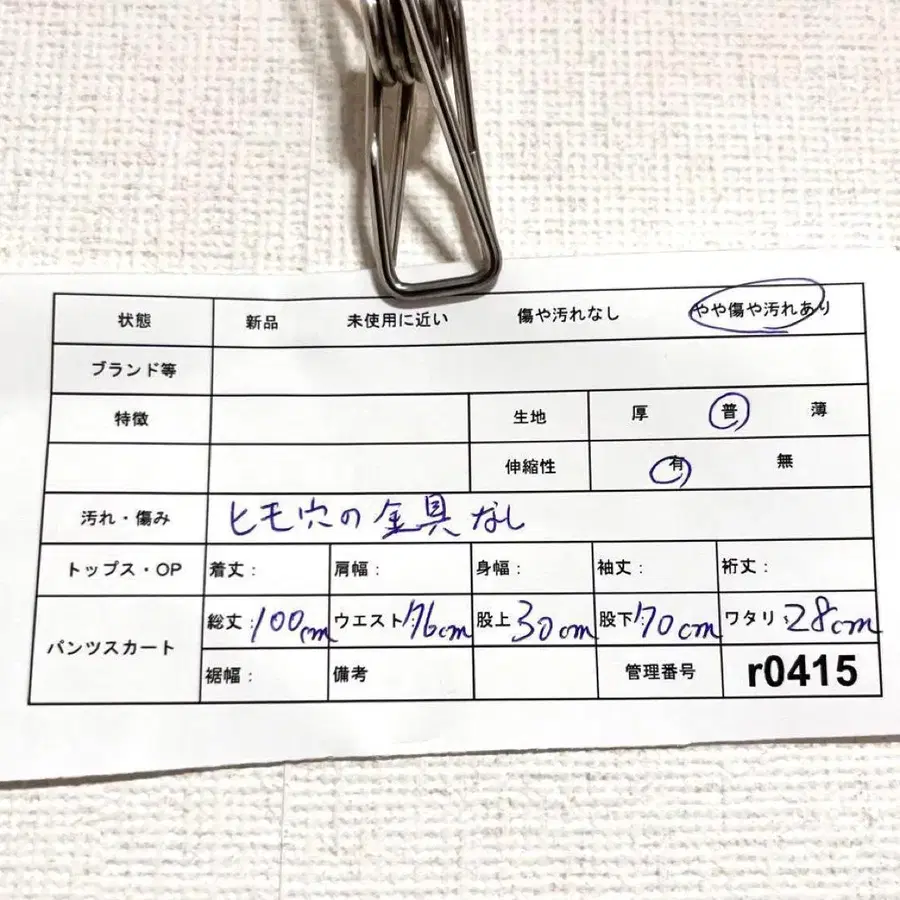 状態 新品 未使用に近い 傷や汚れなし やや傷や汚れあり
ブランド等
特徴 生地 厚 普 薄
伸縮性 有 無
汚れ・傷み ヒモ穴の金具なし
トップス・OP 着丈: 肩幅: 身幅: 袖丈: 裄丈:
パンツスカート 総丈:100cm ウエスト:76cm 股上30cm 股下70cm ワタリ:28cm
裾幅: 備考 管理番号 r0415